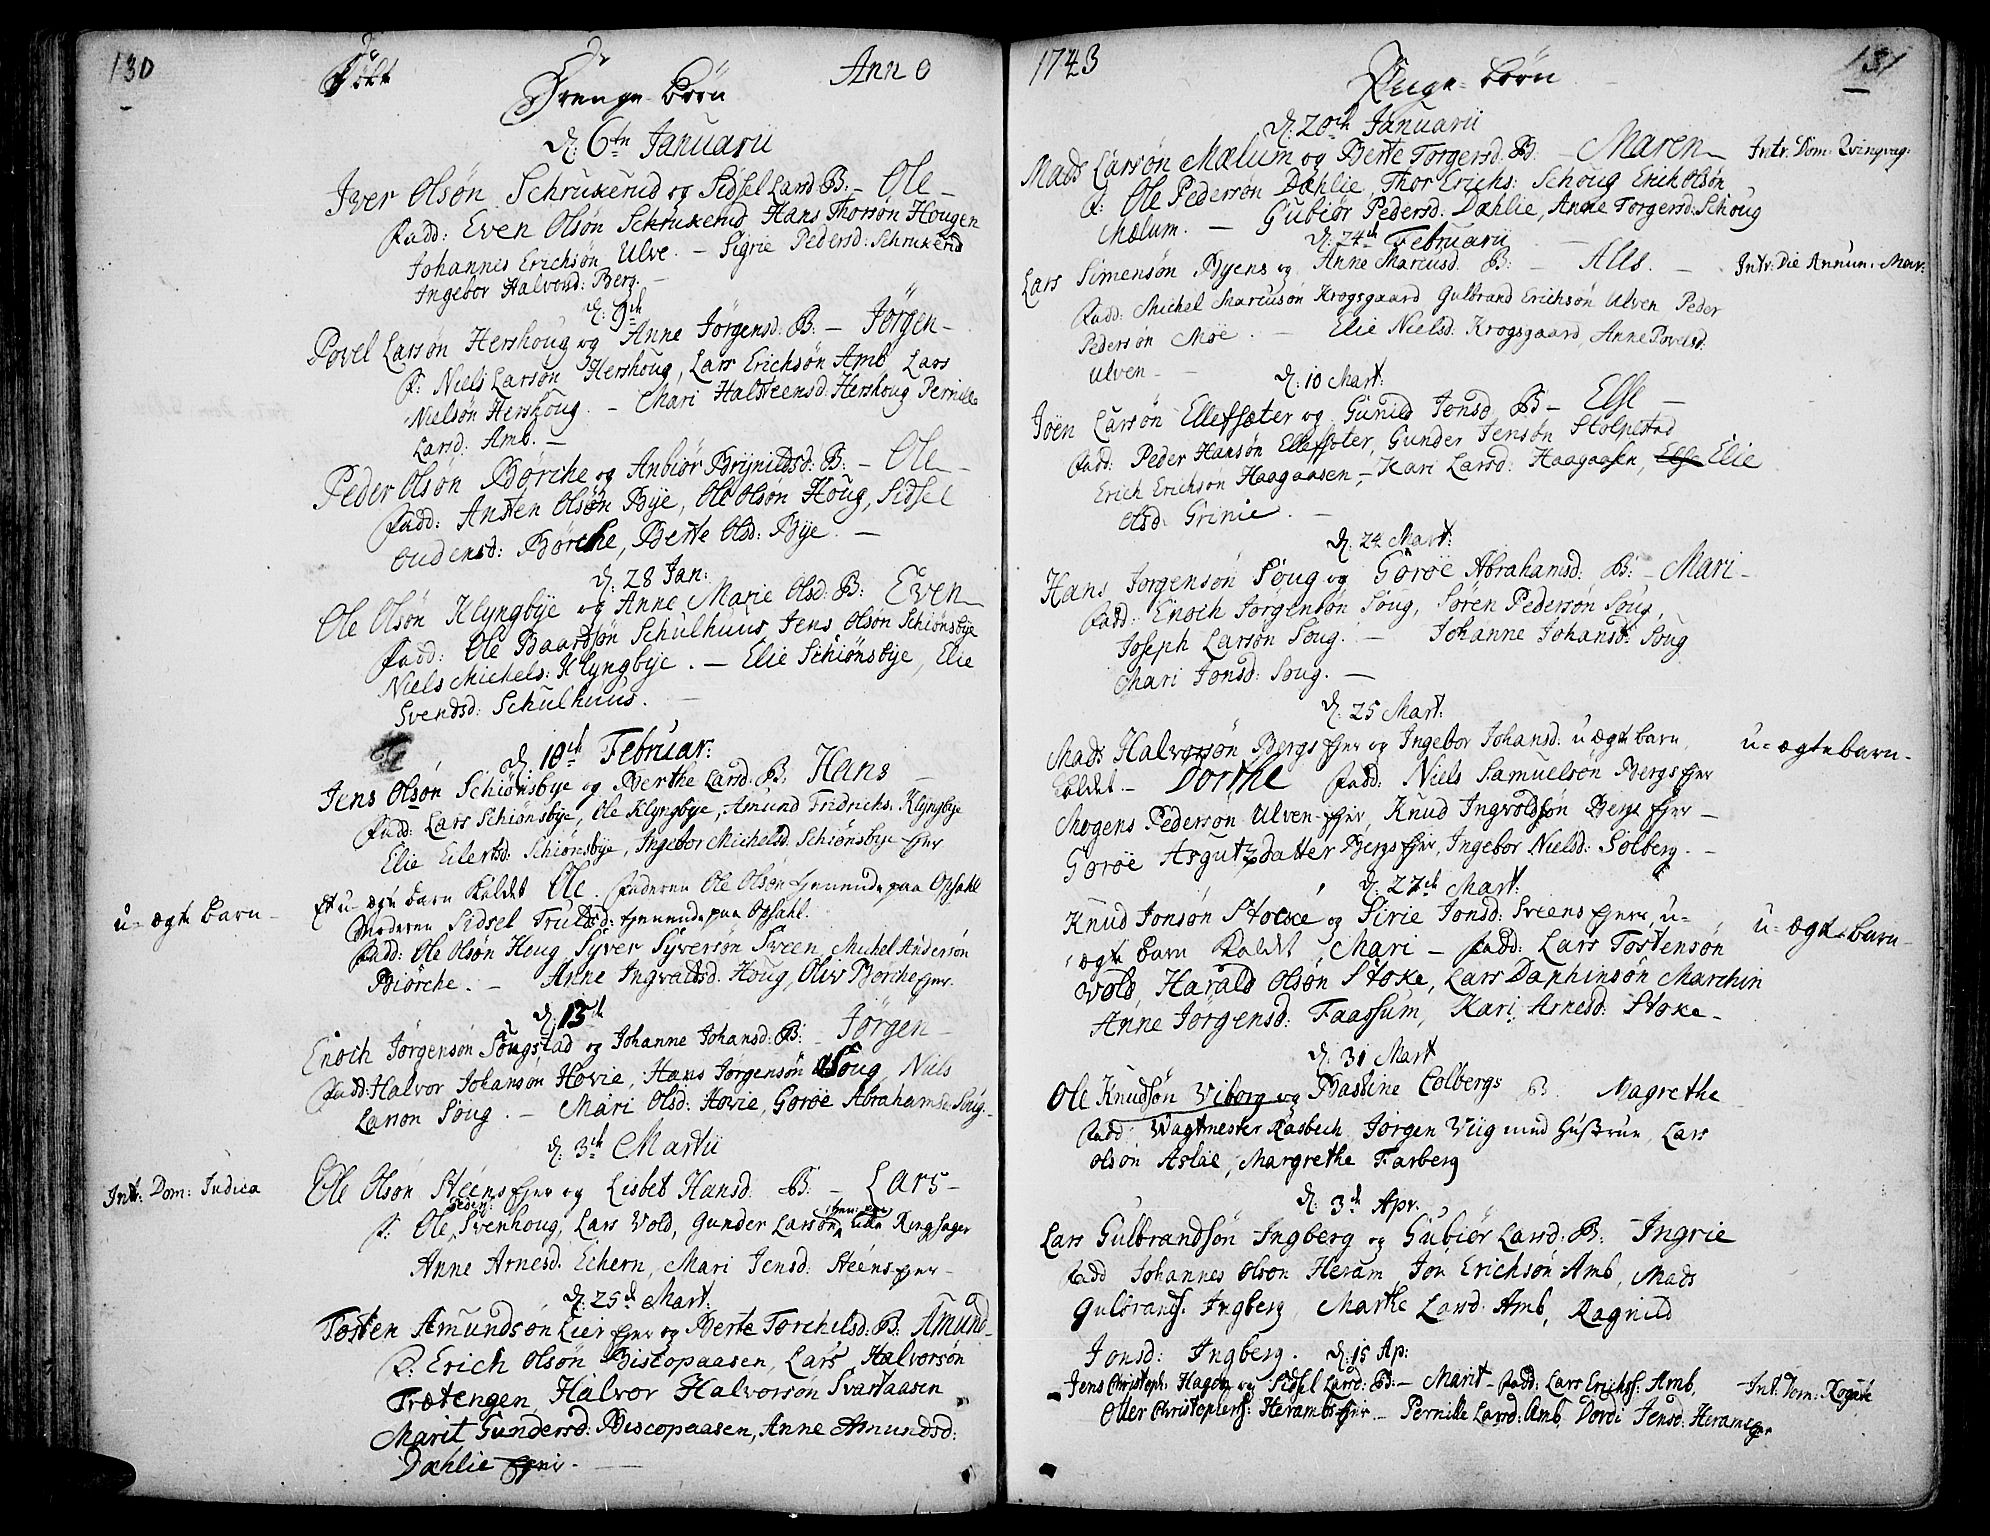 130
Født
Anno
Drenge-børn
d: 6te Januarii
Iver Olsøn Schrukerud og Sidsel Larsd B: – Ole –
Fadd: Even Olsøn Schrukerud, Hans Thorsøn Hougen
Johannes Erichsøn Ulve. – Sigrie Pedersd: Schrukerud
Ingebor Halvorsd: Berg. –
d: 9de
Povel Larsøn Hershoug og Anne Jørgensd: B: – Jørgen –
F: Niels Larsøn Hershoug, Lars Erichsøn Amb, Lars
Nielsøn Hershoug. – Chari Halsteensd: Hershoug Pernille
Larsd: Amb. –
Peder Olsøn Børche og Anbiør Brÿnildsd: B: – Ole –
Fadd: Ansten Olsøn Bÿe, Ole Olsøn Houg, Sidsel
Oudensd: Børche, Berte Olsd: Bÿe. –
d: 28 Jan:
Ole Olsøn Klyngbÿe og Anne Marie Olsd: B: Even –
Fadd: Ole Baardsøn Schulhuus Jens Olsøn Schiønsbÿe
Niels Michels: Klyngbÿe. – Elie Schiønsbÿe, Elie
Svendsd: Schulhuus. –
d: 10de Februar:
Jens Olsøn Schiønsbye og Berthe Larsd. B: Hans –
Fadd: Lars Schiønsbÿe, Ole Klyngbÿe, Amund Fridrichs: Klÿngbÿe
Elie Eilertsd: Schiønsbÿe, Ingebor Michelsd: Schiønsbÿe Ejer
u-ægte barn –
Et u-ægte barn kaldet Ole. Faderen Ole Olsøn tjenende paa Opsahl
Moderen Sidsel Trulsd: tjenende paa Opsahl.
Fadd: Ole Olsøn Houg Sÿver Sÿversøn Sveen, Michel Andersøn
Biørche. – Anne Ingvaldsd. Houg, Oliv Børche Ejer.
d: 13de
Enoch Jørgensøn Sougstad og Johanne Johansd: B: – Jørgen –
Fadd: Halvor Johansøn Hovie, Hans Jørgensøn Soug, Niels
Larsøn Soug. – Mari Olsd: Hovie, Gorøe Abrahamsd: Soug –
d: 3de Martii
Int: Dom: Judica
Ole Olsøn Steens Ejer og Lisbet Hansd. B: – Lars –
F: Ole Peders: Svenhoug, Lars Vold, Gunder Larsøn Ringsager
Anne Arnesd. Echern, Mari Jensd: Steens Ejer –
d: 25de Mart:
Tosten Amundsøn Lier Ejer og Berte Torchelsd: B: Amund –
F: Erich Olsøn Biscopaasen, Lars Halvorsøn
Trætengen, Halvor Halvorsøn Svartaasen
Marit Gundersd: Biscopaasen, Anne Amundsd:
Dæhlie Ejer –
1743
131
Pige-børn
d: 20de Januarii
Mads Larsøn Mælum og Berte Torgersd: B: – Maren –
Intr: Dom: Qvinqvag:
F: Ole Pedersøn Dæhlie, Thor Erichs: Schoug Erich Olsøn
Mælum. – Gubiør Pedersd. Dæhlie, Anne Torgersd: Schoug
d: 24de Februarii
Lars Simensøn Byens og Anne Marcusd. B: – Alis. –
Intr: Die Annun. Mar:
Fadd: Michel Marcusøn Krogsgaard Gulbrand Erichsøn Ulven Peder
Pedersøn Moe. – Elie Nielsd. Krogsgaard, Anne Povelsd.
Ulven –
d: 10 Mart:
Joen Larsøn Ellefsæter og Gunild Jonsd B – Else –
Fadd: Peder Hansøn Ellefsæter, Gunder Jensøn Stolpestad
Erich Erichsøn Haagaasen – Kari Larsd: Haagaasen, Else Elie
Olsd: Grinie. –
d: 24 Mart:
Hans Jørgensøn Soug og Gorøe Abrahamsd: B: – Mari –
Fadd: Enoch Jørgensøn Soug, Søren Pedersøn Soug,
Joseph Larsøn Soug. – Johanne Johansd: Soug
Mari Jonsd: Soug. –
d: 25 Mart:
Mads Halvorsøn Bergs Ejer og Ingebor Johansd: u ægte barn,
u-ægte barn –
kaldet – Dorthe Fadd: Niels Samuelsøn Bergs Ejer
Mogens Pedersøn Ulven-Ejer, Knud Ingvoldsøn Bergs Ejer –
Gorøe Asgutzdatter Bergs Ejer, Ingebor Nielsd: Solberg. –
d: 27de Mart:
Knud Jonsøn Stocke og Sirie Jonsd: Sveens Ejere, u-
ægte barn kaldet Mari – Fadd: Lars Tostensøn
u-ægte barn –
Vold, Harald Olsøn Stoke, Lars Daphinsøn Marchin
Anne Jørgensd: Faassum, Kari Arnesd: Stoke –
d: 31 Mart
Ole Knudsøn Viborg og Bastine Colbergs B. Magrethe
Fadd: Wagtmester Rasbech, Jørgen Viig med Hustrue, Lars
Olsøn Aslæ, Margrethe Farberg
d: 3de Apr.
Lars Gulbrandsøn Ingberg og Gubiør Larsd: B: Ingrie
Fadd Johannes Olsøn Heram, Jon Erichsøn Amb, Mads
Gulbrands: Ingberg, Marthe Larsd: Amb, Ragnild
Jonsd: Ingberg. d: 15 Ap:
Jens Christoph. Hagen og Sidsel Larsd: B: – Marit – Fadd: Lars Erichss: Amb,
Int: Dom: Rogate
Oller Christophers: Herambs Ejer – Pernille Larsd: Amb, Dordi Jensd: Herams Ejer